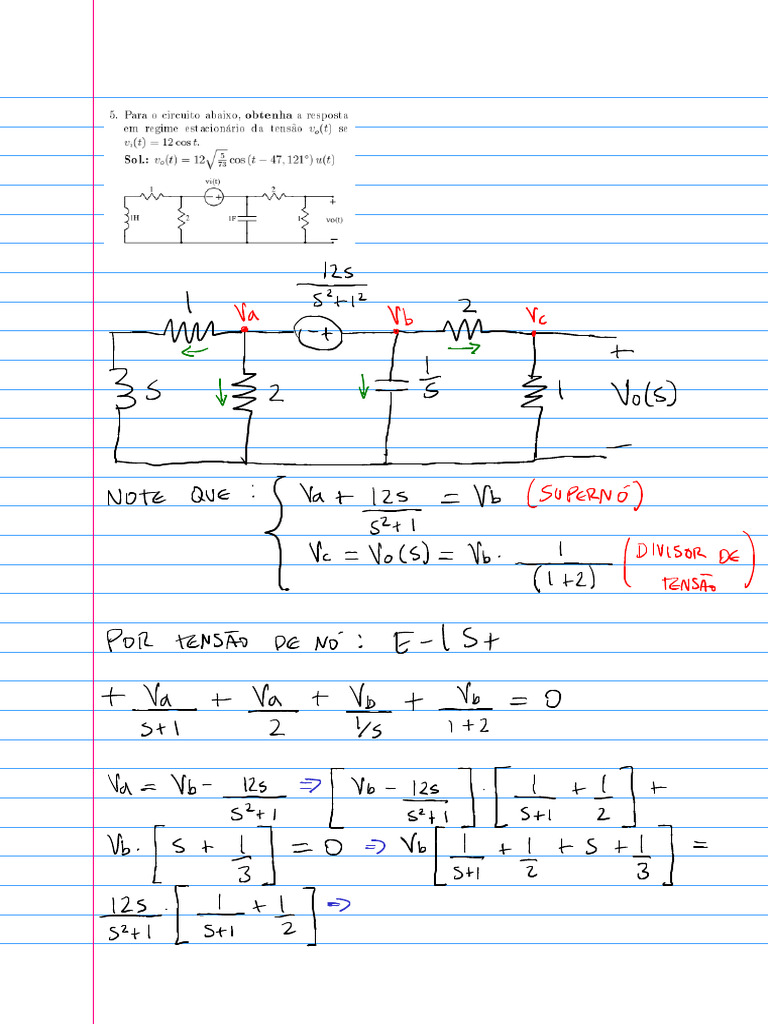 5. Para o circuito abaixo, obtenha a resposta
em regime estacionário da tensão vₒ(t) se
vᵢ(t) = 12 cos t.
Sol.: vₒ(t) = 12√(5/73) cos (t − 47, 121°) u(t)
1 vi(t) 2
− +
+
1H 2 1F 1 vo(t)
−
12s/(s²+1²)
1 Va Vb 2 Vc
− +
+
S 2 1/S 1 Vo(s)
−
NOTE QUE : { Va + 12s/(s²+1) = Vb (SUPERNÓ)
Vc = Vo(s) = Vb · 1/(1+2) (DIVISOR DE TENSÃO)
POR TENSÃO DE NÓ : E-1 S+
+ Va/(s+1) + Va/2 + Vb/(1/s) + Vb/(1+2) = 0
Va = Vb − 12s/(s²+1) ⇒ [Vb − 12s/(s²+1)] · [1/(s+1) + 1/2] +
Vb · [s + 1/3] = 0 ⇒ Vb [1/(s+1) + 1/2 + s + 1/3] =
12s/(s²+1) · [1/(s+1) + 1/2] ⇒